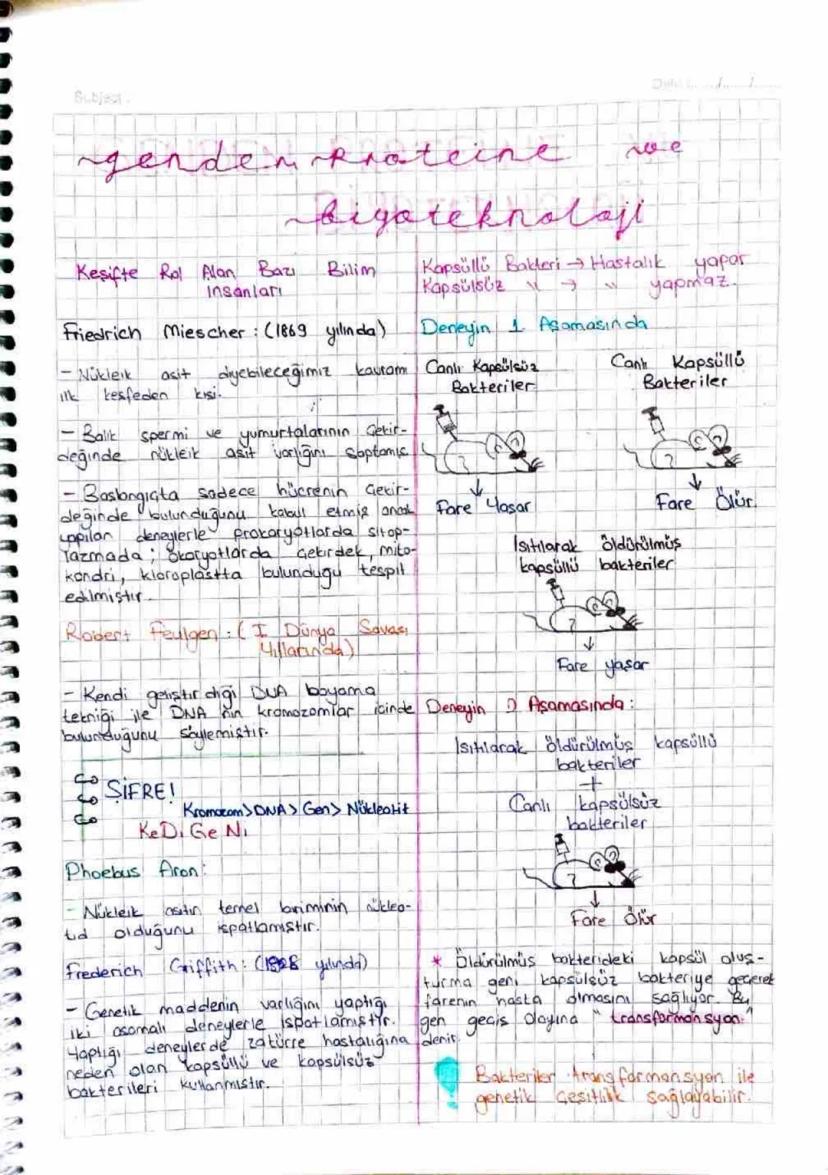 Subject:
Date: ..../..../....
genden proteine ve
biyoteknoloji
Keşifte Rol Alan Bazı Bilim
insanları
Friedrich Miescher : (1869 yılında)
- Nükleik asit diyebileceğimiz kavramı
ilk keşfeden kişi.
- Balık spermi ve yumurtalarının çekir-
değinde nükleik asit varlığını saptamış
- Başlangıçta sadece hücrenin çekir-
değinde bulunduğunu kabul etmiş ancak
yapılan deneylerle prokaryotlarda sitop-
lazmada ; ökaryotlarda çekirdek, mito-
kondri, kloroplastta bulunduğu tespit
edilmiştir.
Robert Feulgen : ( I. Dünya Savaşı
Yıllarında)
- Kendi geliştirdiği DNA boyama
tekniği ile DNA'nın kromozomlar içinde
bulunduğunu söylemiştir.
ŞİFRE!
Kromozom > DNA > Gen > Nükleotit
KeDi Ge Ni
Phoebus Aron:
- Nükleik asitin temel biriminin nükleo-
tid olduğunu ispatlamıştır.
Frederich Griffith : (1928 yılında)
- Genetik maddenin varlığını yaptığı
iki aşamalı deneylerle ispatlamıştır.
Yaptığı deneylerde zatürre hastalığına
neden olan kapsüllü ve kapsülsüz
bakterileri kullanmıştır.
Kapsüllü Bakteri → Hastalık yapar
Kapsülsüz " → " yapmaz.
Deneyin 1. Aşamasında
Canlı Kapsülsüz
Bakteriler
Canlı Kapsüllü
Bakteriler
Fare Yaşar
Fare Ölür.
Isıtılarak öldürülmüş
kapsüllü bakteriler
Fare yaşar
Deneyin 2. Aşamasında :
Isıtılarak öldürülmüş kapsüllü
bakteriler
+
Canlı kapsülsüz
bakteriler
Fare Ölür
* Öldürülmüş bakterideki kapsül oluş-
turma geni kapsülsüz bakteriye geçerek
farenin hasta olmasını sağlıyor. Bu
gen geçiş olayına "transformansyon"
denir.
! Bakteriler transformansyon ile
genetik çeşitlilik sağlayabilir.